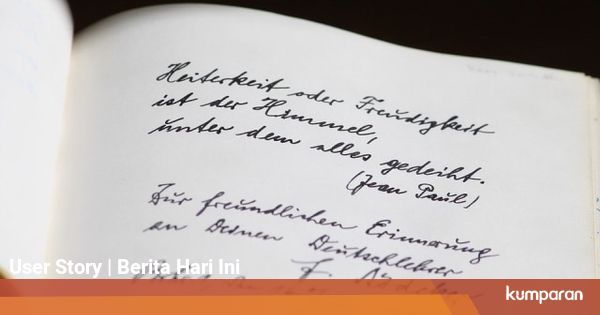 Heiterkeit oder Freudigkeit
ist der Himmel,
unter dem alles gedeiht.
(Jean Paul)
Zur freundlichen Erinnerung
an Deinen Deutschlehrer
User Story | Berita Hari Ini
kumparan